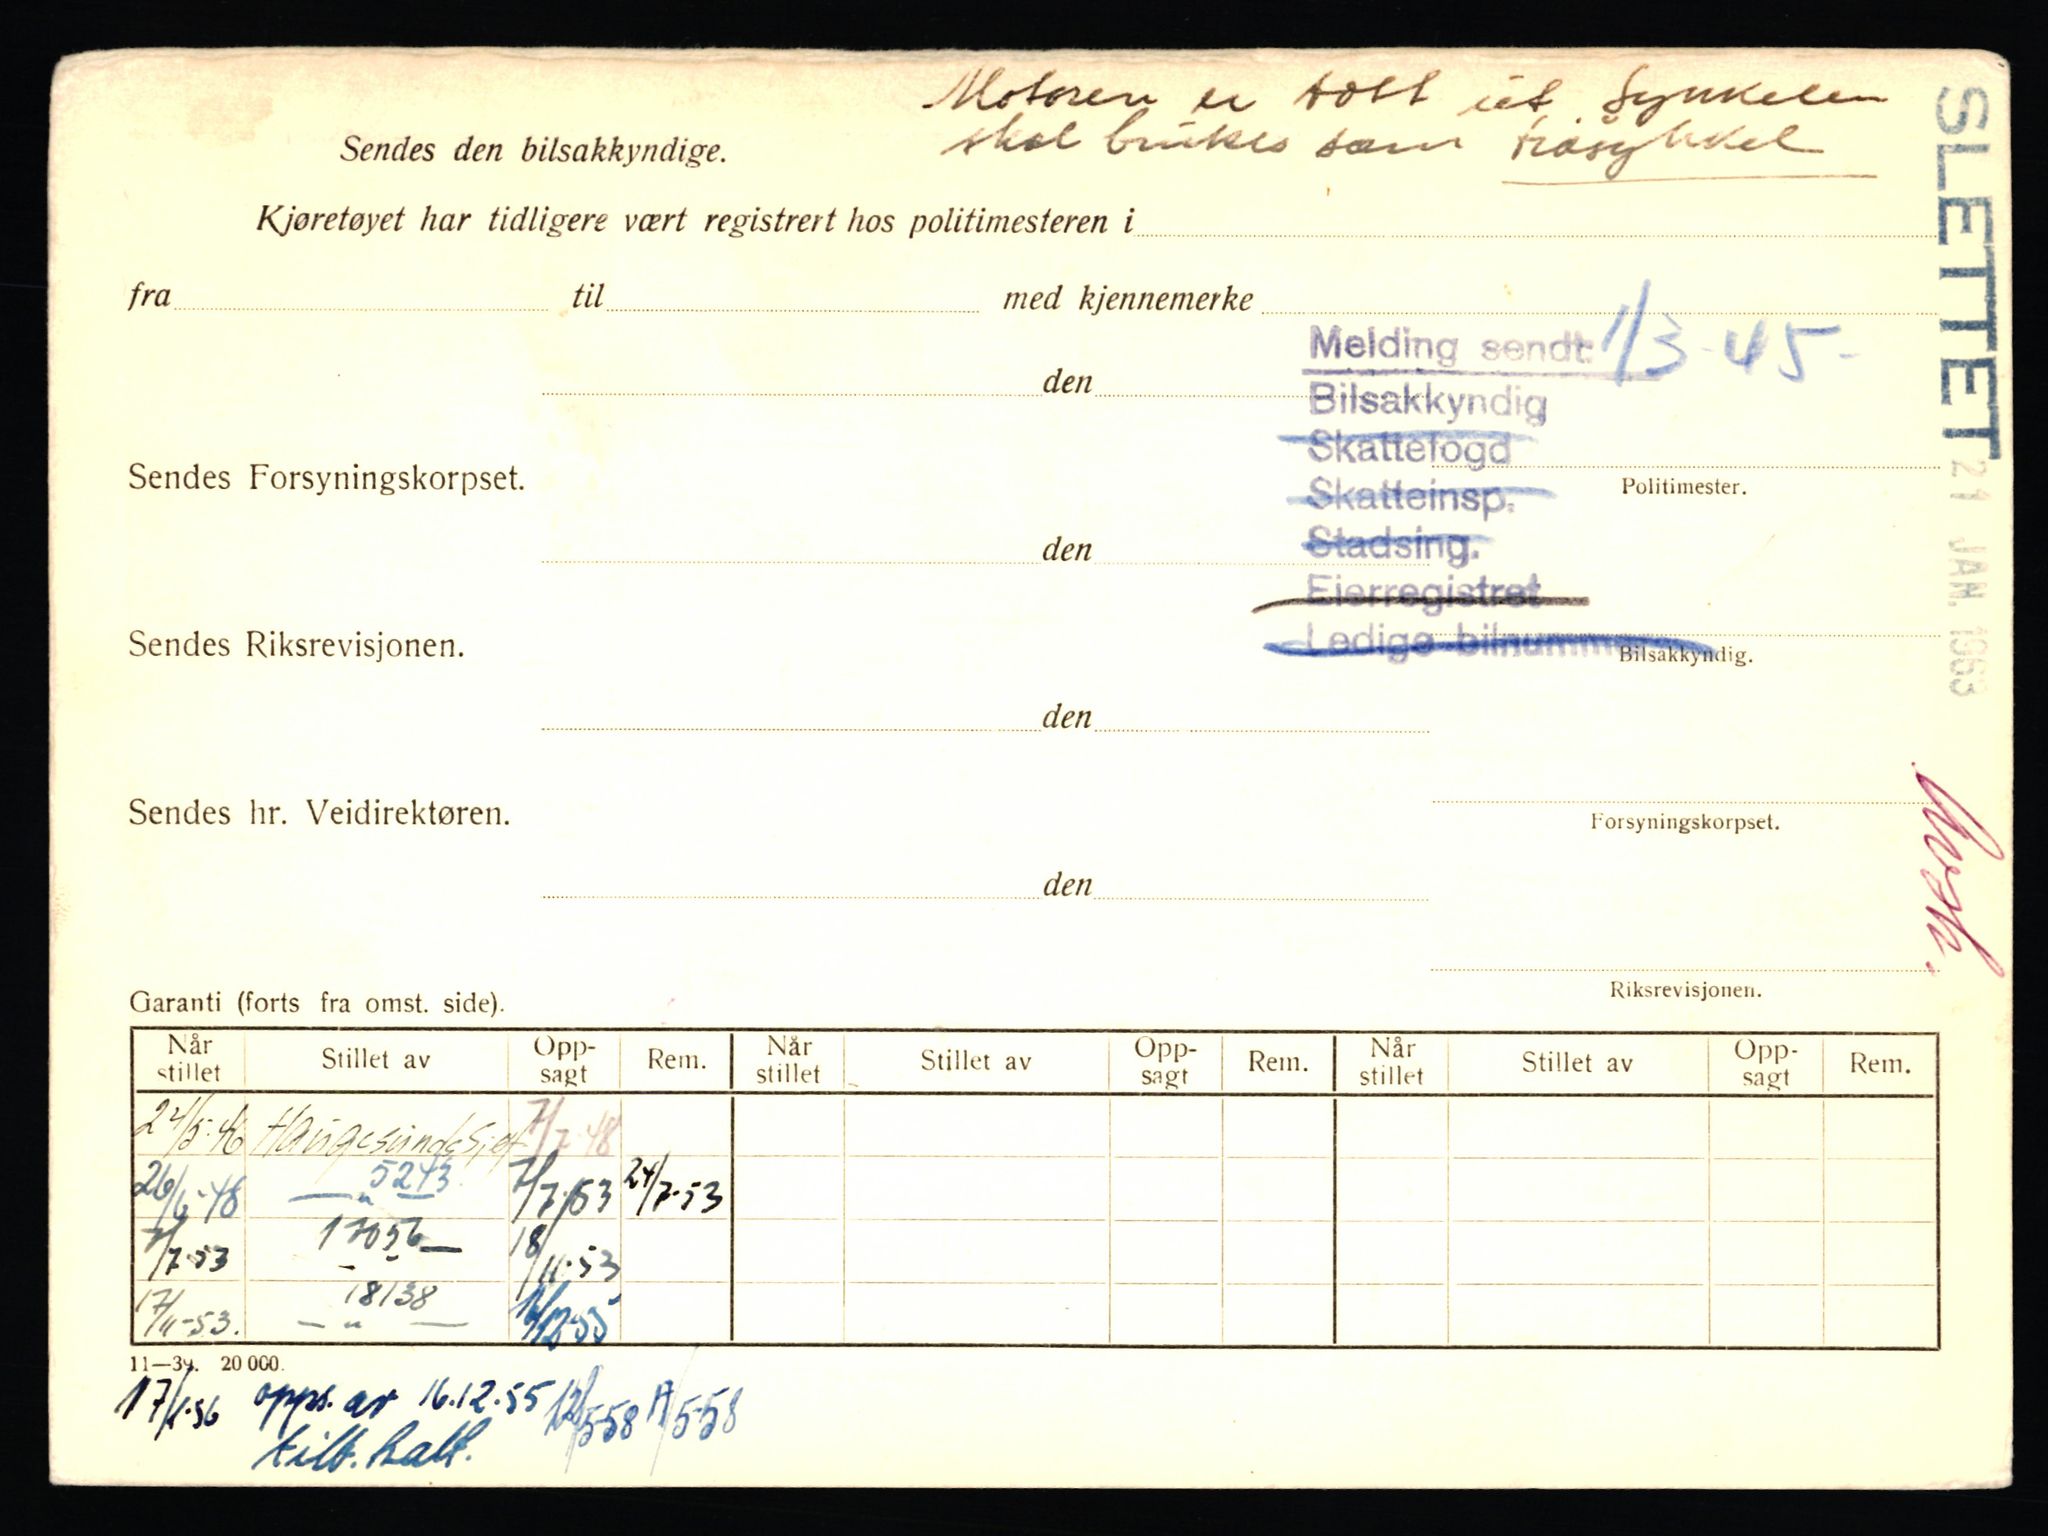 Motoren er tatt ut Sykkelen
skal brukes som tråsykkel
Sendes den bilsakkyndige.
Kjøretøyet har tidligere vært registrert hos politimesteren i
fra til med kjennemerke
SLETTET 21 JAN. 1963
Melding sendt: 1/3-45-
den
Bilsakkyndig
Skattefogd
Sendes Forsyningskorpset.
Skatteinsp.
Politimester.
Stadsing.
den
Eierregistret
Sendes Riksrevisjonen.
Ledige bilnumm
Bilsakkyndig.
den
Sendes hr. Veidirektøren.
Forsyningskorpset.
den
Riksrevisjonen.
Garanti (forts fra omst. side).
Når stillet Stillet av Opp-sagt Rem. Når stillet Stillet av Opp-sagt Rem. Når stillet Stillet av Opp-sagt Rem.
24/5-46 Haugesund Sjøf 7/7-48
26/6-48 5243 7/7-53 24/7-53
— „ —
7/7-53 17056 18/11-53
— „ —
17/11-53. 18138 16/12-55
— „ —
11—39. 20 000.
17/1-56 opps. av 16.12.55 12/5-58 A/5-58
tilb. kalt.